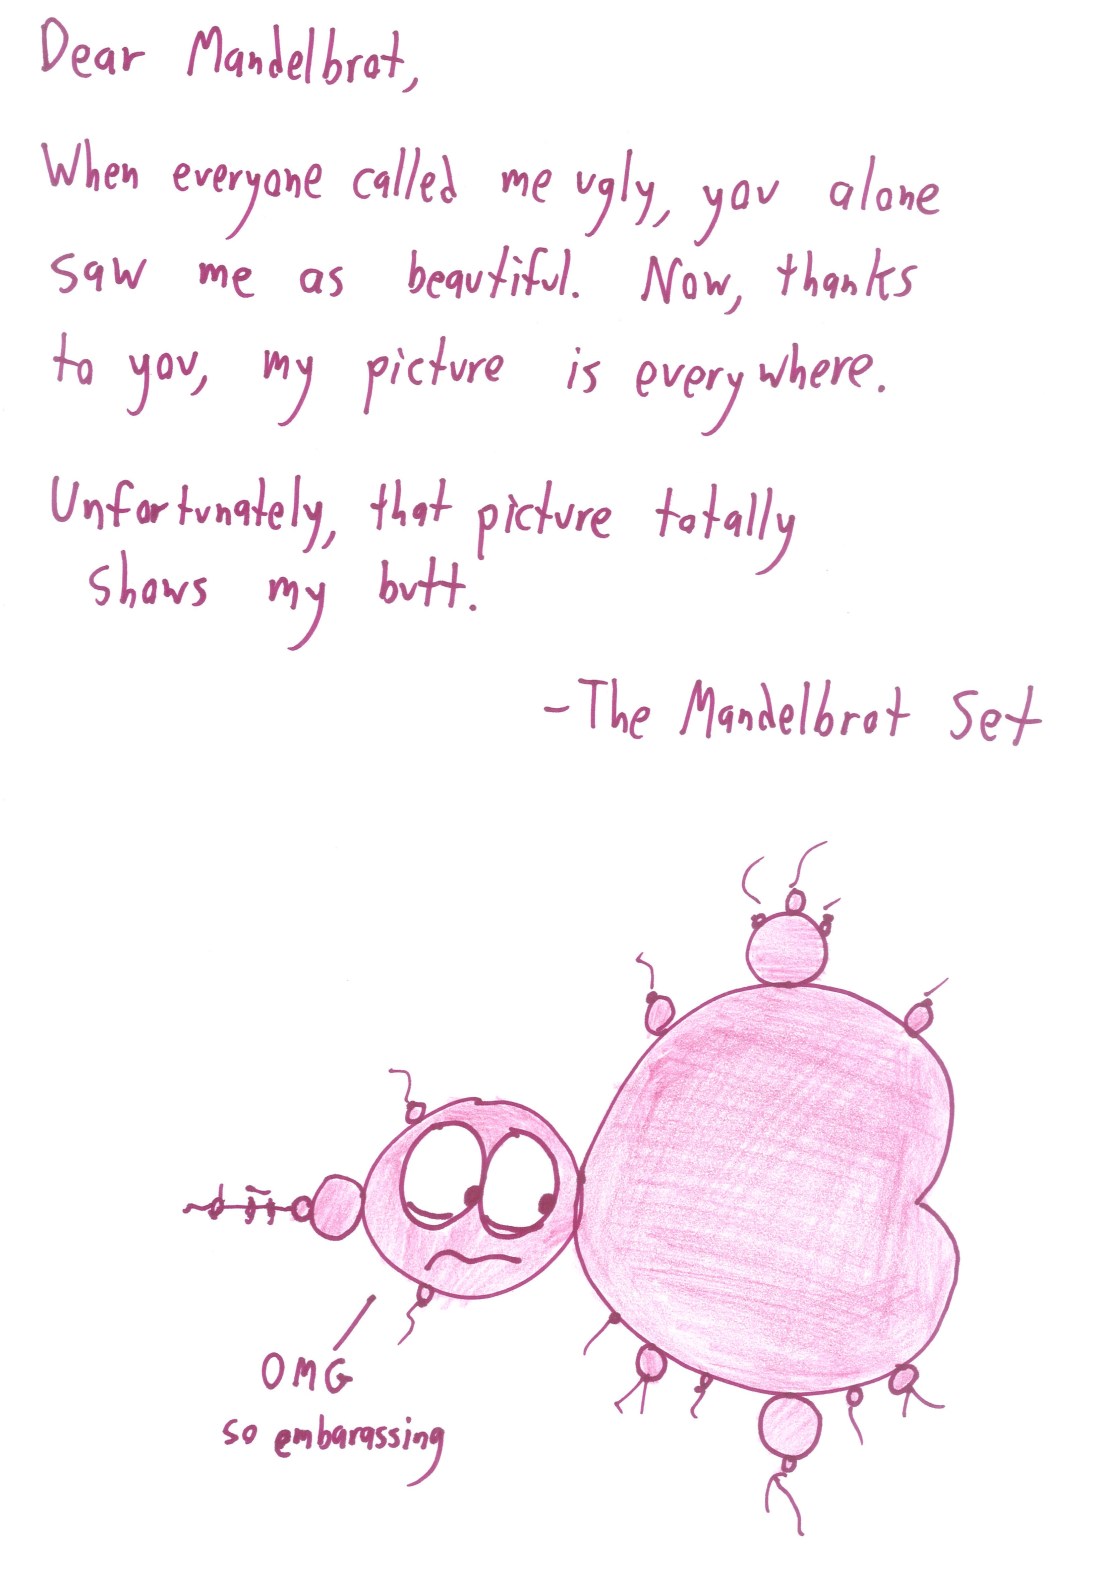 Dear Mandelbrot,
When everyone called me ugly, you alone
saw me as beautiful. Now, thanks
to you, my picture is everywhere.
Unfortunately, that picture totally
shows my butt.
-The Mandelbrot Set
OMG
so embarassing